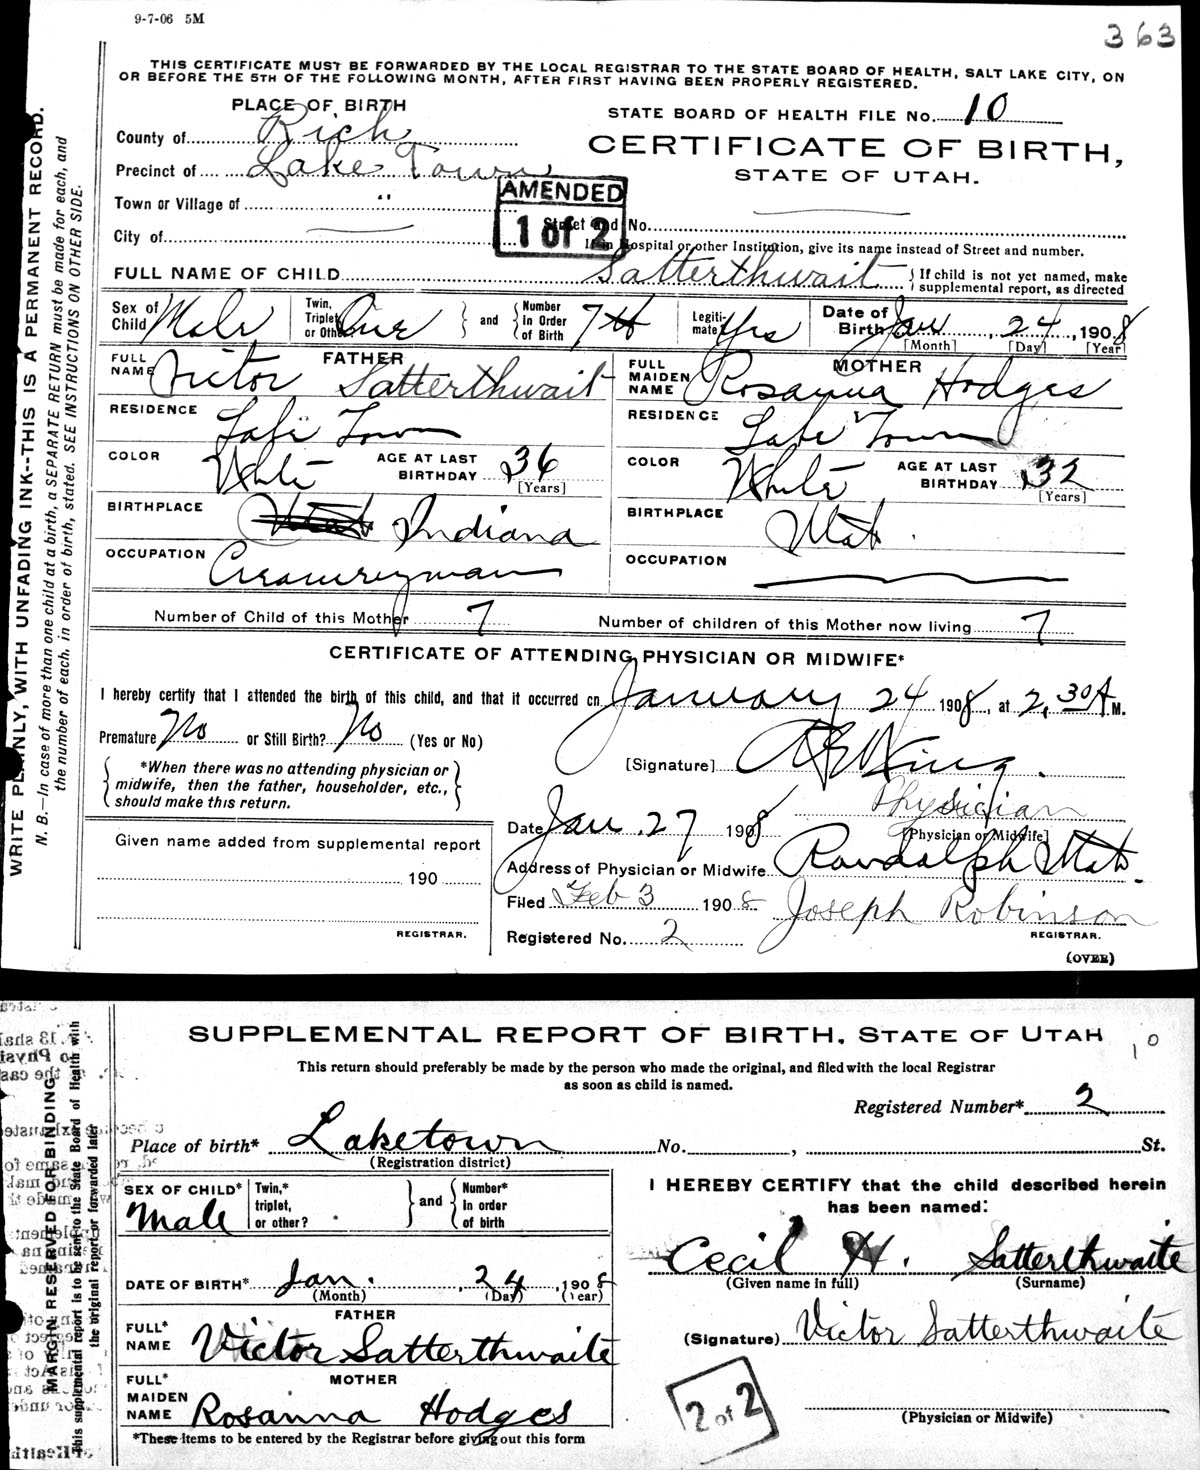 9-7-06 5M
363
THIS CERTIFICATE MUST BE FORWARDED BY THE LOCAL REGISTRAR TO THE STATE BOARD OF HEALTH, SALT LAKE CITY, ON
OR BEFORE THE 5TH OF THE FOLLOWING MONTH, AFTER FIRST HAVING BEEN PROPERLY REGISTERED.
WRITE PLAINLY, WITH UNFADING INK--THIS IS A PERMANENT RECORD.
N. B.—In case of more than one child at a birth, a SEPARATE RETURN must be made for each, and
the number of each, in order of birth, stated. SEE INSTRUCTIONS ON OTHER SIDE.
PLACE OF BIRTH
STATE BOARD OF HEALTH FILE No. 10
County of Rich
CERTIFICATE OF BIRTH,
Precinct of Lake Town
STATE OF UTAH.
AMENDED
1 of 2
Town or Village of "
Street and No.
City of
If in Hospital or other Institution, give its name instead of Street and number.
FULL NAME OF CHILD Satterthwait { If child is not yet named, make
supplemental report, as directed
Sex of Child Male Twin, Triplet or Other One } and { Number In Order of Birth 7th Legitimate Yes Date of Birth Jan 24, 1908
[Month] [Day] [Year]
FATHER
FULL NAME Victor Satterthwait
MOTHER
FULL MAIDEN NAME Rosanna Hodges
RESIDENCE Lake Town
RESIDENCE Lake Town
COLOR White AGE AT LAST BIRTHDAY 36 [Years]
COLOR White AGE AT LAST BIRTHDAY 32 [Years]
BIRTHPLACE Utah Indiana
BIRTHPLACE Utah.
OCCUPATION Creameryman
OCCUPATION
Number of Child of this Mother 7 Number of children of this Mother now living 7
CERTIFICATE OF ATTENDING PHYSICIAN OR MIDWIFE*
I hereby certify that I attended the birth of this child, and that it occurred on January 24 1908, at 2.30 A M.
Premature No or Still Birth? No (Yes or No)
[Signature]
*When there was no attending physician or
midwife, then the father, householder, etc.,
should make this return.
Physician
Date Jan. 27 1908 [Physician or Midwife]
Given name added from supplemental report
190
REGISTRAR.
Address of Physician or Midwife. Randolph Utah.
Filed Feb 3 1908 Joseph Robinson
Registered No. 2 REGISTRAR.
(OVER)
SUPPLEMENTAL REPORT OF BIRTH, STATE OF UTAH
10
This return should preferably be made by the person who made the original, and filed with the local Registrar
as soon as child is named.
Registered Number* 2
Place of birth* Laketown No. , St.
(Registration district)
MARGIN RESERVED FOR BINDING
This supplemental report is to be sent to the State Board of Health with
the original report or forwarded later
SEX OF CHILD* Male Twin,* triplet, or other? } and { Number* In order of birth
I HEREBY CERTIFY that the child described herein
has been named:
Cecil H. Satterthwaite
(Given name in full) (Surname)
DATE OF BIRTH* Jan. 24, 1908
(Month) (Day) (Year)
FATHER
FULL* NAME Victor Satterthwaite
(Signature) Victor Satterthwaite
MOTHER
FULL* MAIDEN NAME Rosanna Hodges
2 of 2
(Physician or Midwife)
*These items to be entered by the Registrar before giving out this form